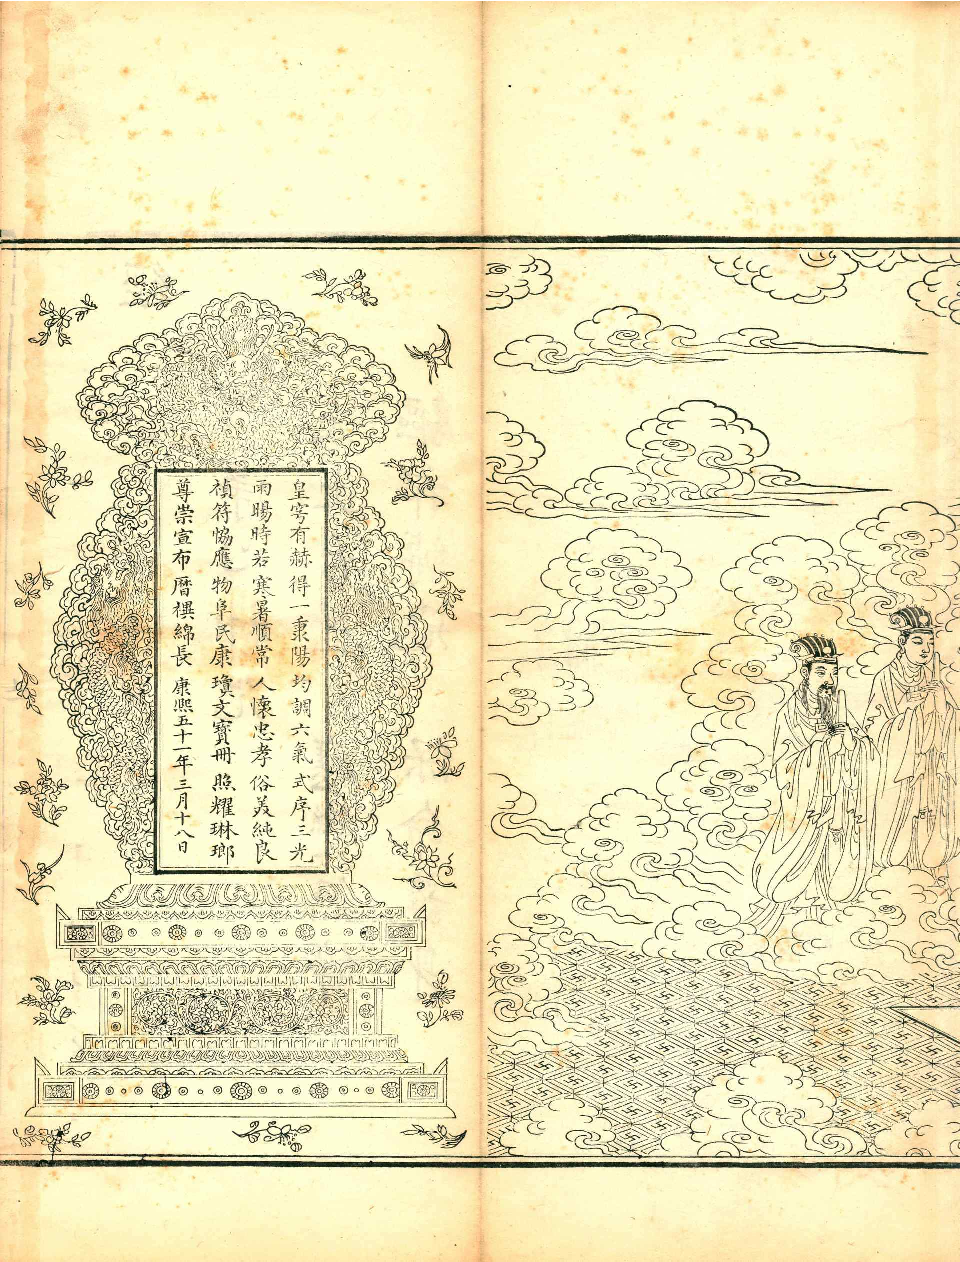 皇穹有赫得一秉陽均調六氣式序三光
雨暘時若寒暑順常人懷忠孝俗美純良
禎符恊應物阜民康瓊文寶冊照耀琳瑯
尊崇宣布厯禩綿長 康熙五十一年三月十八日